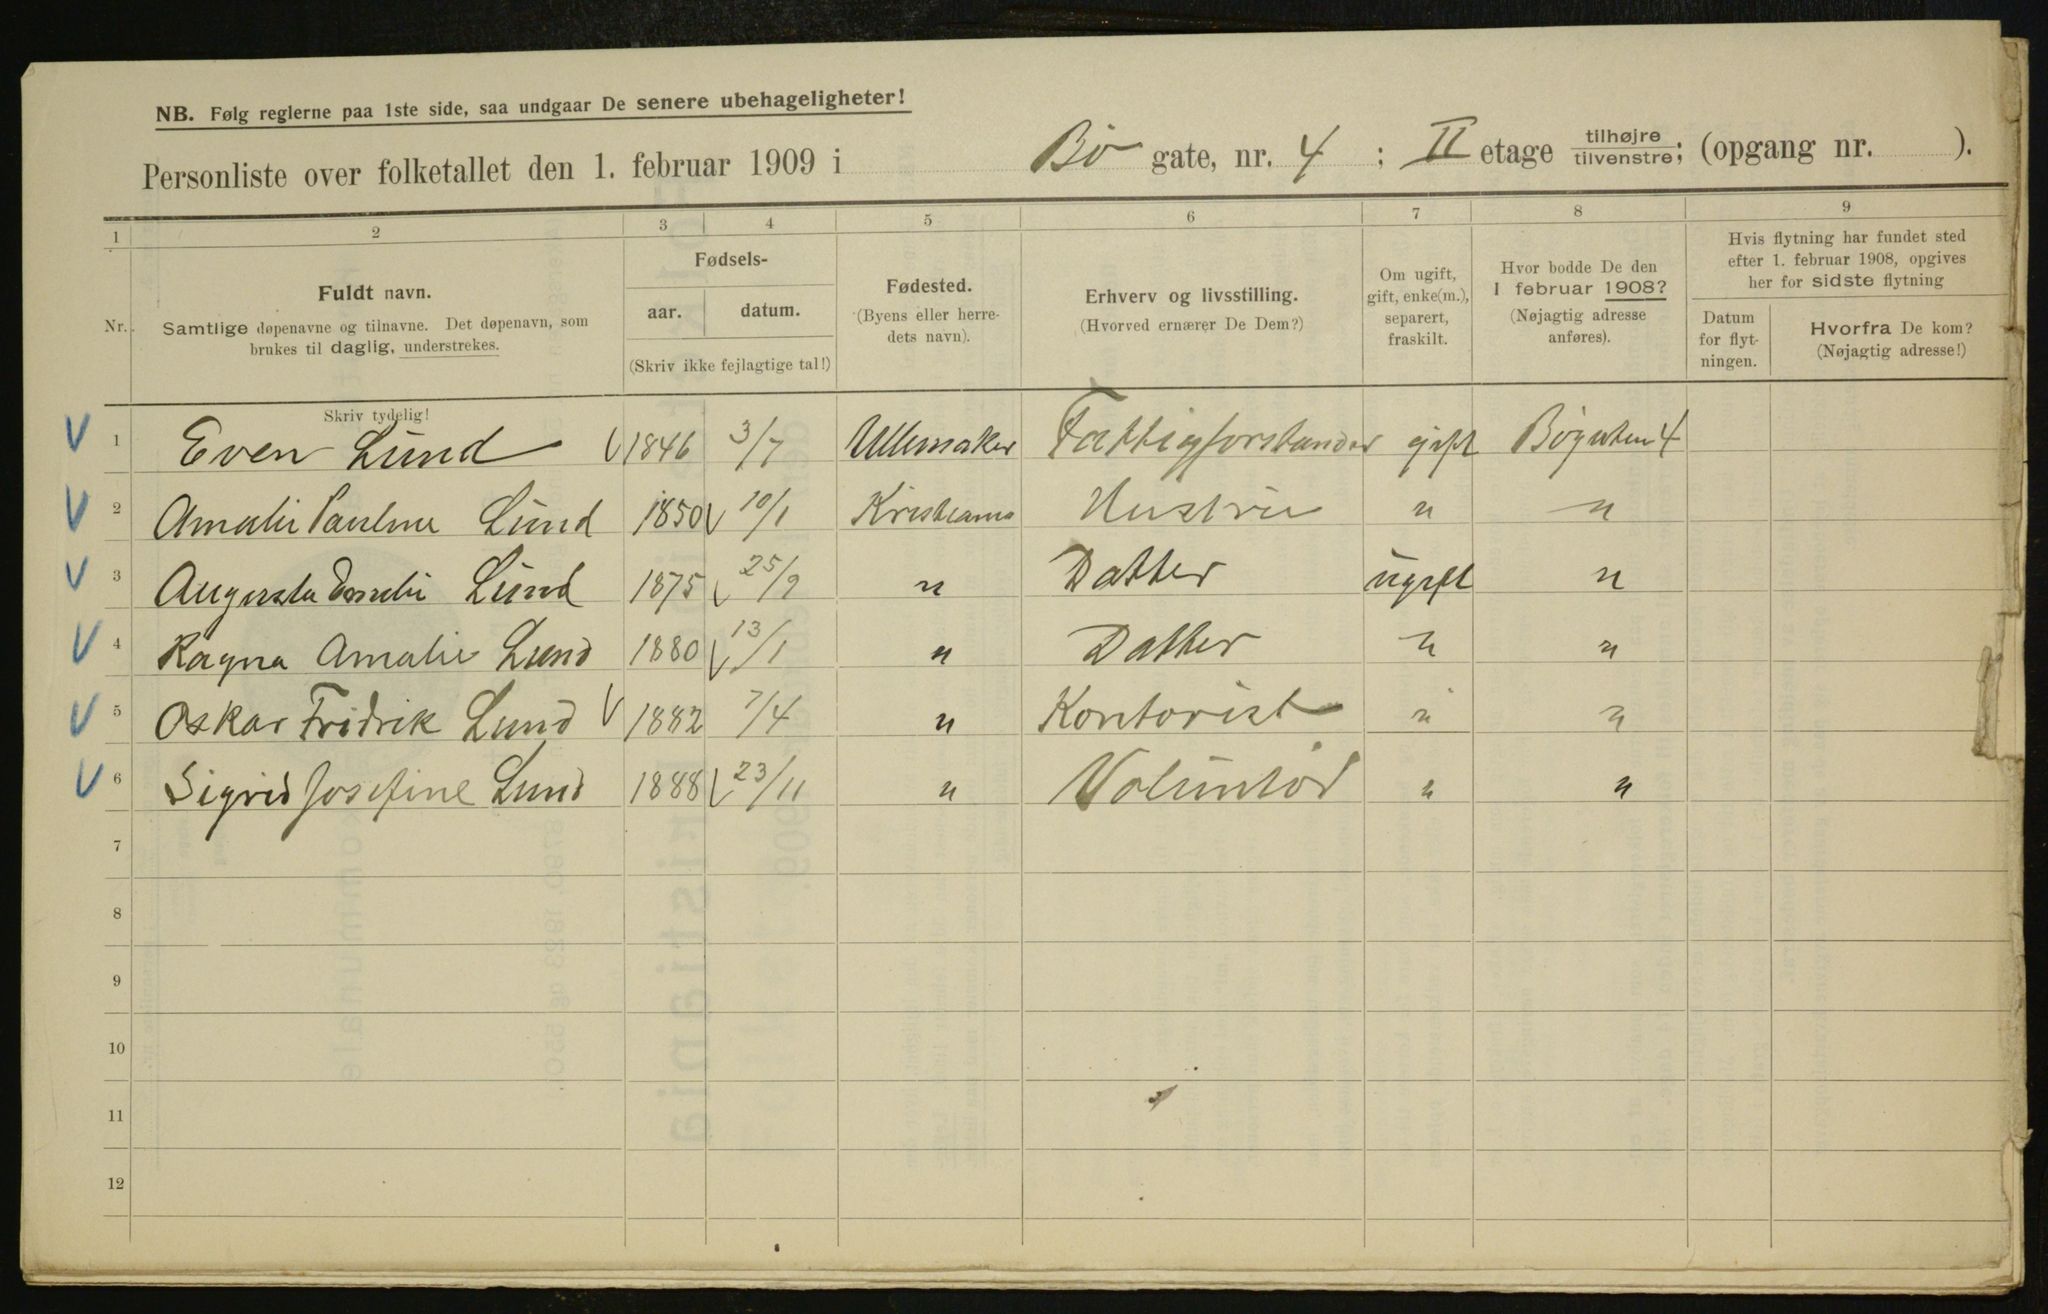 NB. Følg reglerne paa 1ste side, saa undgaar De senere ubehageligheter!
Personliste over folketallet den 1. februar 1909 i Bö gate, nr. 4 ; II etage tilhøjre/tilvenstre; (opgang nr. ).
1 2 3 4 5 6 7 8 9
Nr.
Fuldt navn.
Samtlige døpenavne og tilnavne. Det døpenavn, som
brukes til daglig, understrekes.
Skriv tydelig!
Fødsels-
aar. datum.
(Skriv ikke fejlagtige tal!)
Fødested.
(Byens eller herre-
dets navn).
Erhverv og livsstilling.
(Hvorved ernærer De Dem?)
Om ugift,
gift, enke(m.),
separert,
fraskilt.
Hvor bodde De den
1 februar 1908?
(Nøjagtig adresse
anføres).
Hvis flytning har fundet sted
efter 1. februar 1908, opgives
her for sidste flytning
Datum
for flyt-
ningen.
Hvorfra De kom?
(Nøjagtig adresse!)
1 Even Lund 1846 3/7 Ullensaker Fattigforstander gift Bøgaten 4
2 Amalie Pauline Lund 1850 10/1 Kristiania Hustru " "
3 Augusta Emilie Lund 1875 25/9 " Datter ugift "
4 Ragna Amalie Lund 1880 13/1 " Datter " "
5 Oskar Fridrik Lund 1882 7/4 " Kontorist " "
6 Sigrid Josefine Lund 1888 23/11 " Voluntør " "
7
8
9
10
11
12